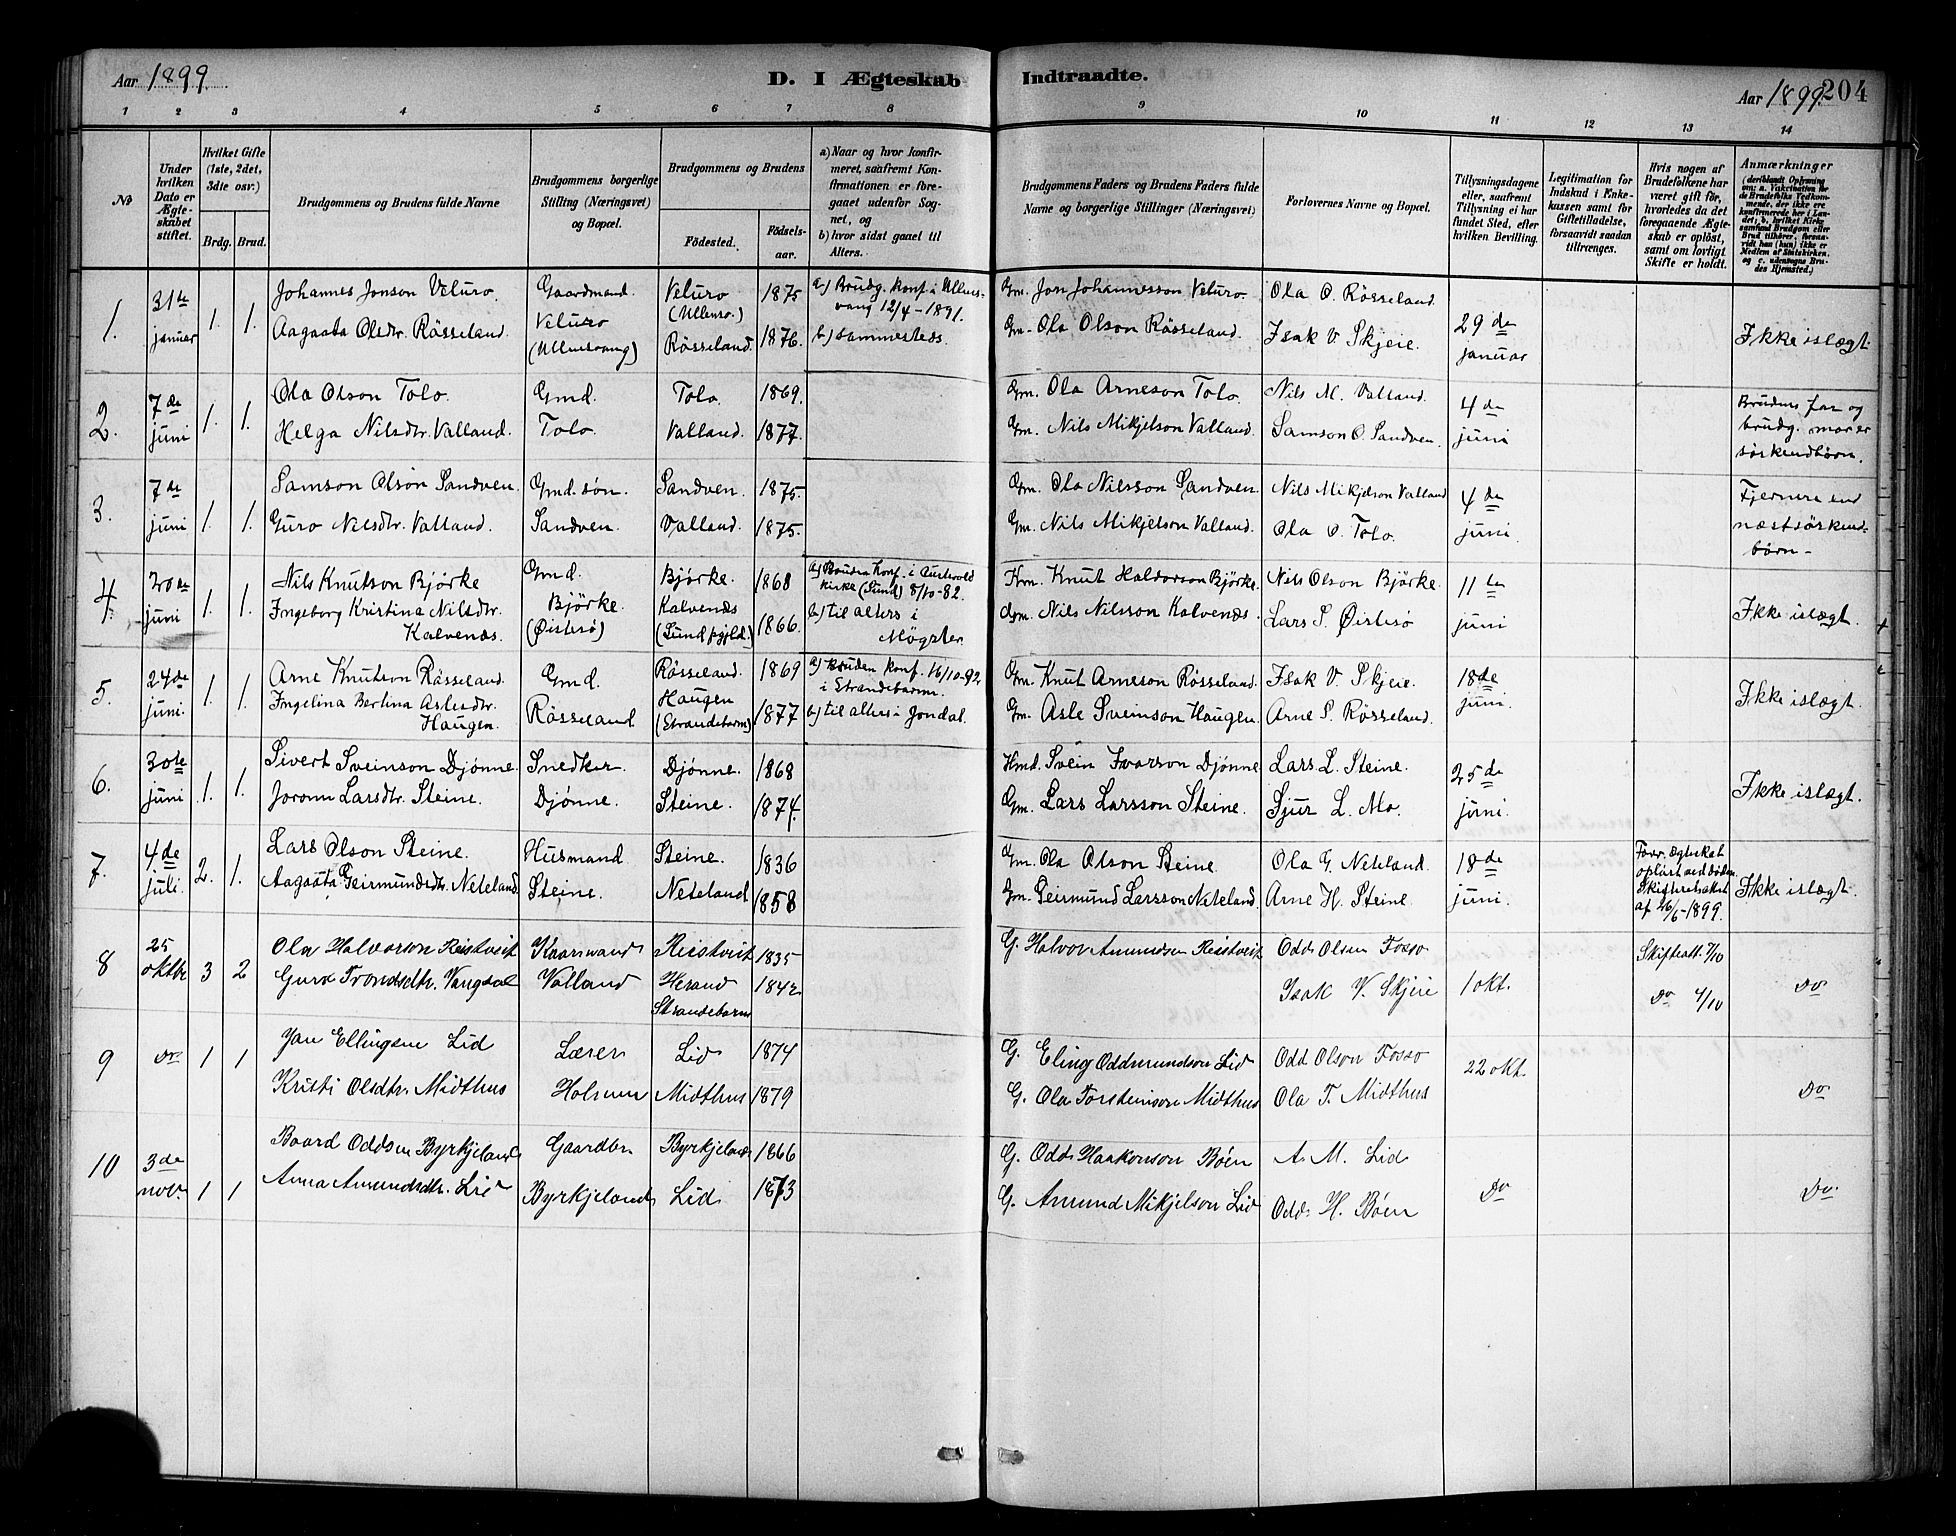 Aar 1899
D. I Ægteskab Indtraadte.
Aar 1899. 204
1 2 3 4 5 6 7 8 9 10 11 12 13 14
No
Under hvilken Dato er Ægteskabet stiftet.
Hvilket Gifte (1ste, 2det, 3die osv.)
Brdg. Brud.
Brudgommens og Brudens fulde Navne
Brudgommens borgerlige Stilling (Næringsvei) og Bopæl.
Brudgommens og Brudens
Fødested.
Fødselsaar.
a) Naar og hvor konfirmeret, saafremt Konfirmationen er foregaaet udenfor Sognet, og
b) hvor sidst gaaet til Alters.
Brudgommens Faders og Brudens Faders fulde Navne og borgerlige Stillinger (Næringsvei)
Forlovernes Navne og Bopæl.
Tillysningsdagene eller, saafremt Tillysning ei har fundet Sted, efter hvilken Bevilling.
Legitimation for Indskud i Enkekassen samt for Giftetilladelse, forsaavidt saadan tiltrænges.
Hvis nogen af Brudefolkene har været gift før, hvorledes da det foregaaende Ægteskab er opløst, samt om lovligt Skifte er holdt.
Anmærkninger
(deriblandt Oplysning om: a. Vakcination for de Brudefolks Vedkommende, der ikke ere konfirmerede her i Landet; b. hvilket Kirkesamfund Brudgom eller Brud tilhører, forsaavidt han (hun) ikke er Medlem af Statskirken, og c. udenbygs Brudes Hjemsted.)
1. 31te januar 1. 1.
Johannes Jonson Velure. Gaardmand. Veluro (Ullensv.) 1875 a) Brudg. konf. i Ullensvang 12/4-1891.
Aagaata Olsdtr. Rösseland. Veluro (Ullensvang) Rösseland. 1876. b) sammesteds.
Gm. Jon Johannesson Veluro. Ola O. Rösseland.
Gm. Ola Olson Rösseland. Isak V. Skjeie. 29de januar Ikke i slægt.
2. 7de juni 1. 1.
Ola Olson Tolo. Gmd. Tolo. 1869.
Helga Nilsdtr. Valland. Tolo. Valland. 1877.
Gm. Ola Arneson Tolo. Nils M. Valland. 4de juni
Gm. Nils Mikjelson Valland. Samson O. Sandven.
Brudens far og brudg. mor er sørkendbørn.
3. 7de juni 1. 1.
Samson Olson Sandven. Gmd. søn. Sandven. 1875.
Guro Nilsdtr. Valland. Sandven. Valland. 1875.
Gm. Ola Nilsson Sandven. Nils Mikjelson Valland 4de juni.
Gm. Nils Mikjelson Valland. Ola O. Tolo.
Fjernere end næstsörkendbörn-
4. 20de juni 1. 1.
Nils Knutson Björke Gmd. Björke. 1868 a) Bruden konf. i Austevold kirke (Sund) 8/10-82.
Ingeborg Kristina Nilsdtr. Kalvenæs. Björke. (Øistesø) Kalvenæs (Sund pgjld.) 1866. b) til alters i Møgster.
Knut Haldorson Björke. Nils Olson Björke. 11te juni
Gm. Nils Nilsson Kalvenæs. Lars S. Øistesø Ikke i slægt.
5. 24de juni. 1. 1.
Arne Knutson Rösseland. Gmd. Rösseland. 1869 a) Bruden konf. 16/10-92 i Strandebarm.
Ingelina Bertina Aslesdtr. Haugen. Rösseland Haugen (Strandebarm) 1877 b) til alters i Jondal.
Gm. Knut Arneson Rösseland. Isak V. Skjeie. 18de juni.
Gm. Asle Sveinson Haugen. Arne S. Rösseland. Ikke i slægt.
6. 30te juni 1. 1.
Sivert Sveinson Djønne. Snedker. Djønne. 1868
Joronn Larsdtr. Steine. Djønne. Steine. 1874.
Hmd. Svein Ivarson Djønne Lars L. Steine. 25de juni.
Gm. Lars Larsson Steine. Sjur L. Mo. Ikke i slægt.
7. 4de juli. 2. 1.
Lars Olson Steine. Husmand Steine. 1836
Aagaata Geirmundsdtr. Neteland Steine. Neteland 1858
Gm. Ola Olson Steine Ola G. Neteland. 18de juni
Gm. Geirmund Larsson Neteland. Arne H. Steine.
Forr. ægteskab opløst ved døden. Skifteretsakt af 26/5-1899.
Ikke i slægt.
8 25 oktbr 3 2
Ola Halvorson Reistveit Kaarmand Reistveit 1835
Guro Trondsdtr. Vangdal Valland Herand Strandebarm 1842
G. Halvor Amundsen Reistveit Odd Olsen Fosso
Isak V. Skjeie 1 okt.
Skifteatt. 7/10
Do 4/10 Do
9 Do 1 1
Jan Ellingsen Lid Lærer Lid 1874
Kristi Olsdtr. Midthus Holmen Midthus 1879
G. Eling Oddmundson Lid Odd Olson Fosso 22 okt.
G. Ola Torsteinson Midthus Ola T. Midthus Do
10 3de novbr 1 1
Baard Oddsen Byrkjeland Gaardbr Byrkjeland 1866
Anna Amundsdtr. Lid Byrkjeland Lid 1873
G. Odd Haakonson Bøen A. M. Lid
G. Amund Mikjelson Lid Odd H. Bøen Do Do